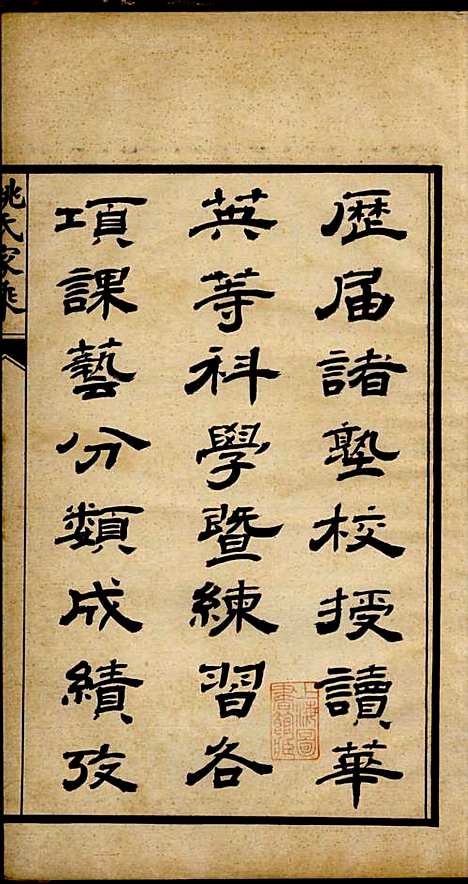 歷届諸塾校授讀華
英等科學暨練習各
項課藝分類成績攷
姚氏家乘
上海圖書館藏